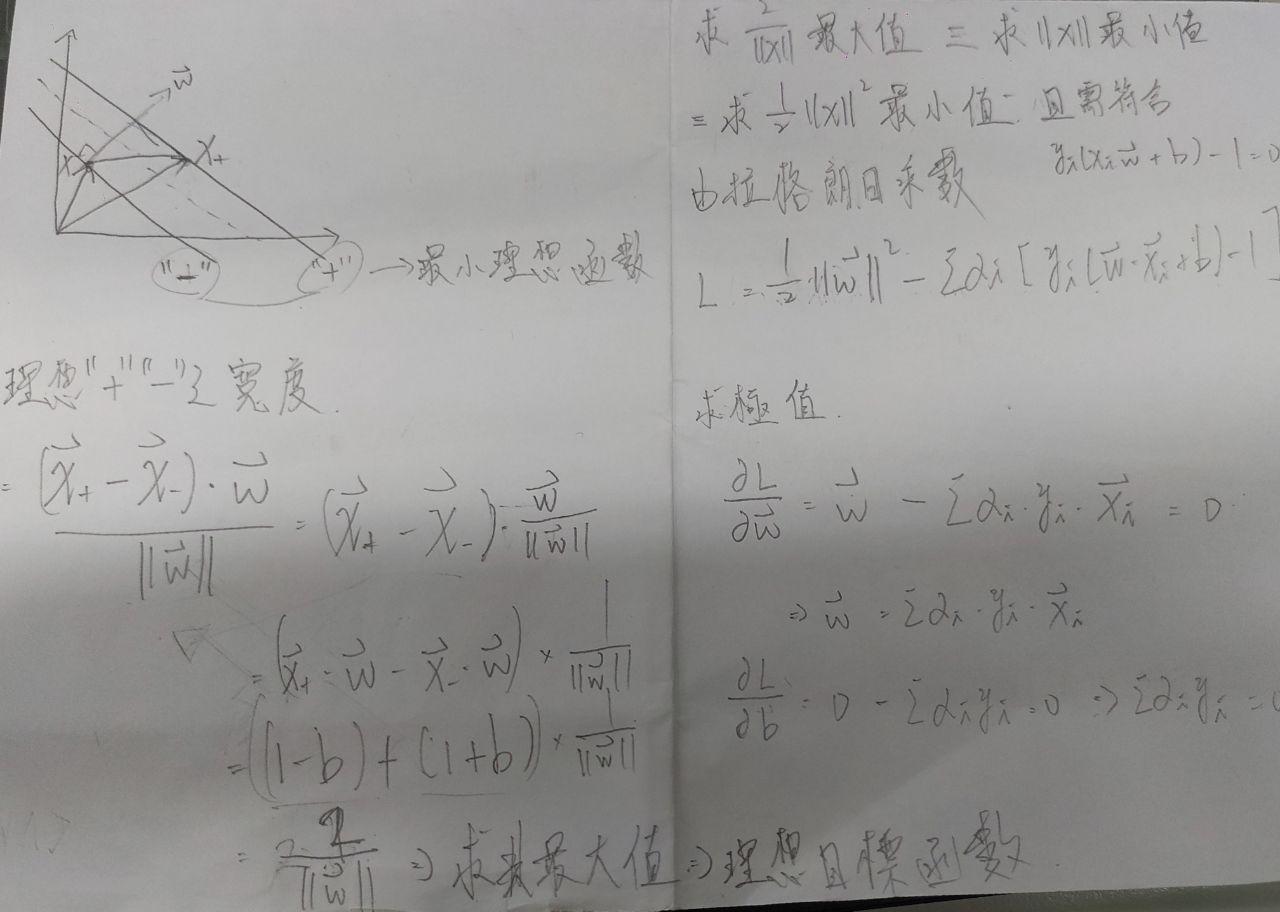 w⃗
X₋
X₊
"-" "+" → 最小理想函數
理想"+""-"之寬度.
= (x⃗₊ - x⃗₋)·w⃗ / ||w⃗|| = (x⃗₊ - x⃗₋)· w⃗ / ||w⃗||
= (x⃗₊·w⃗ - x⃗₋·w⃗) × 1 / ||w⃗||
= ((1-b)+(1+b)) × 1 / ||w⃗||
= 2 / ||w⃗|| ⇒ 求其最大值 ⇒ 理想目標函數.
求 2 / ||x|| 最大值 ≡ 求 ||x|| 最小值
≡ 求 1/2 ||x||² 最小值 且需符合
yᵢ(xᵢw⃗ + b) - 1 = 0
由拉格朗日乘數
L = 1/2 ||w⃗||² - Σαᵢ [yᵢ(w⃗·x⃗ᵢ + b) - 1]
求極值.
∂L/∂w⃗ = w⃗ - Σαᵢ·yᵢ·x⃗ᵢ = 0.
⇒ w⃗ = Σαᵢ·yᵢ·x⃗ᵢ
∂L/∂b = 0 - Σαᵢyᵢ = 0 ⇒ Σαᵢyᵢ = 0